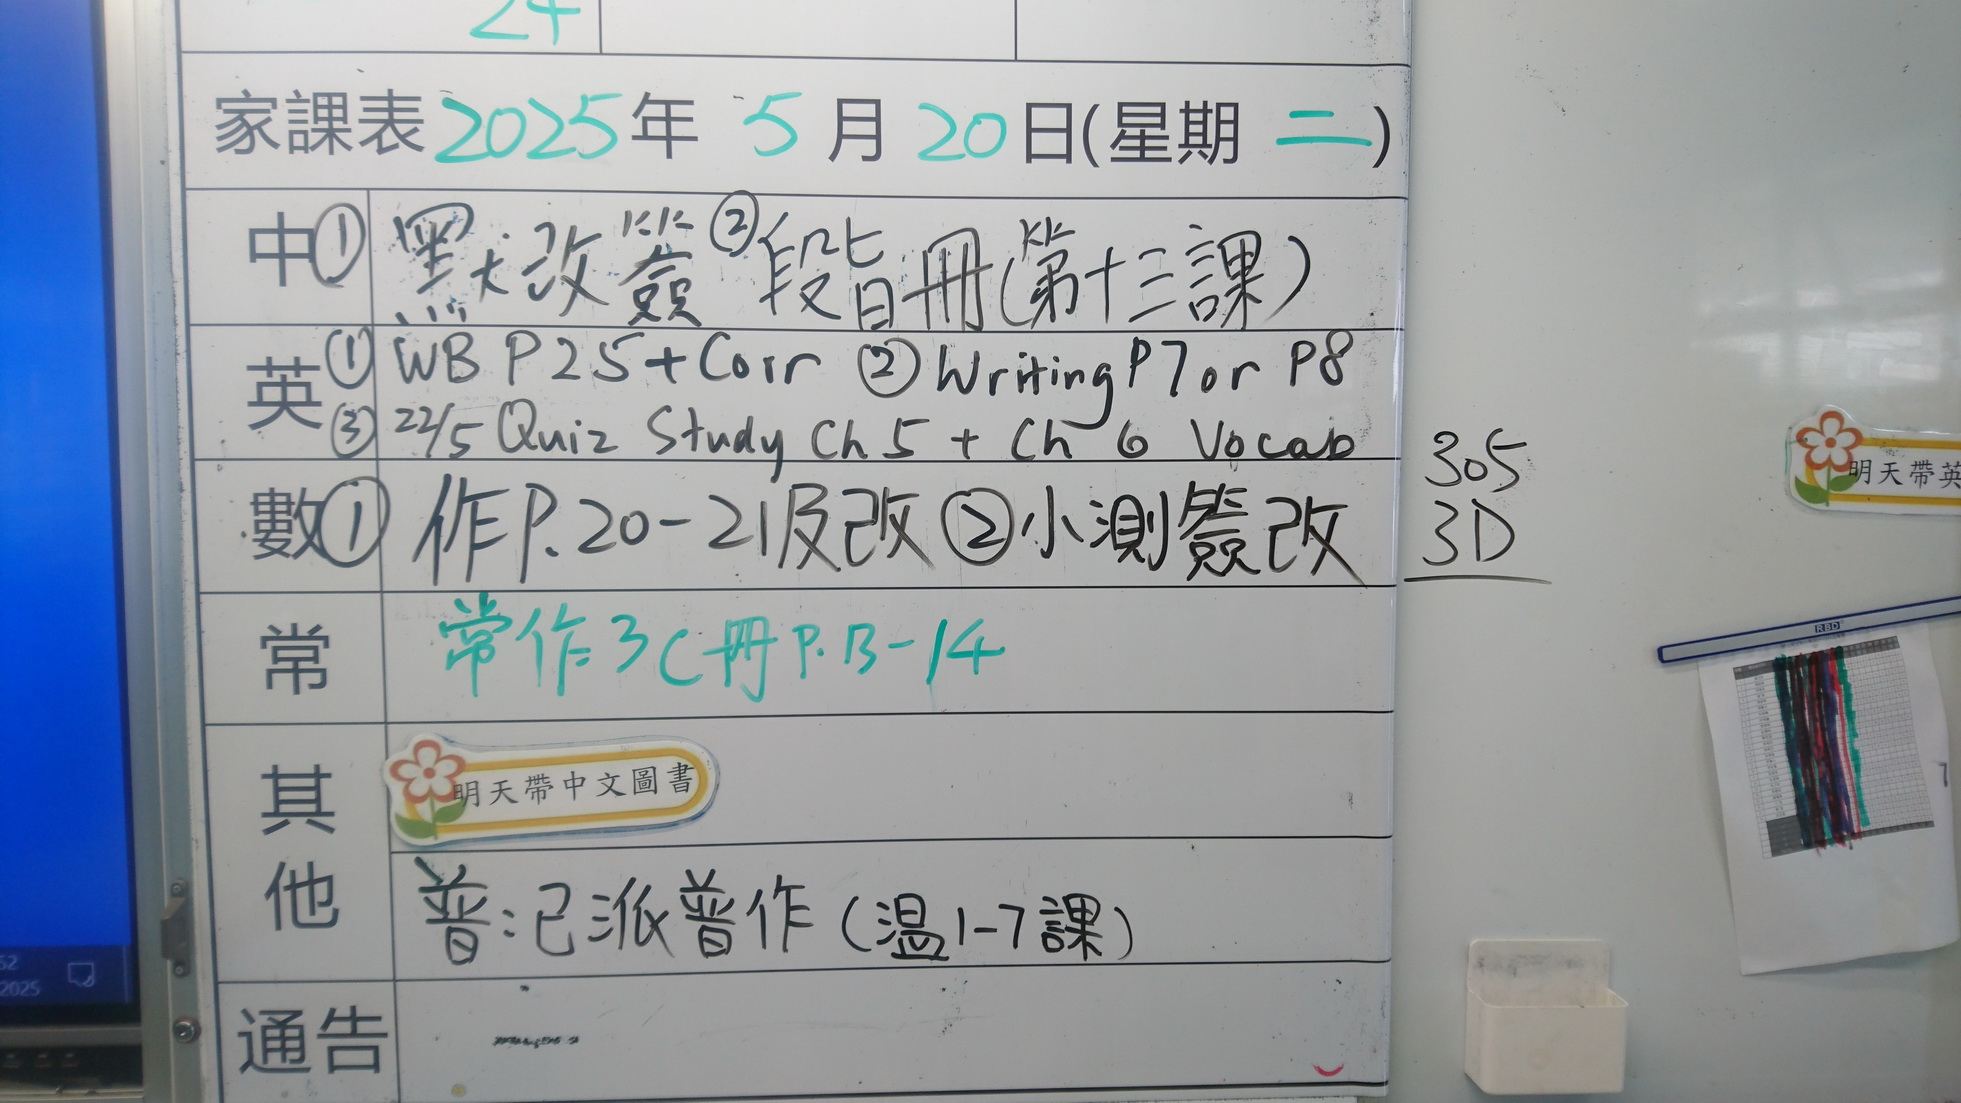 24
家課表 2025年 5月 20日(星期 二)
中 ① 默改簽 ② 段皆冊(第十三課)
英 ① WB P25+Corr ② Writing P7 or P8
③ 22/5 Quiz Study Ch 5 + Ch 6 Vocab
數 ① 作P.20-21及改 ② 小測簽改
常 常作3C冊P.13-14
其他 明天帶中文圖書
普:已派普作(温1-7課)
通告
305
3D
明天帶英
RBD
52
2025